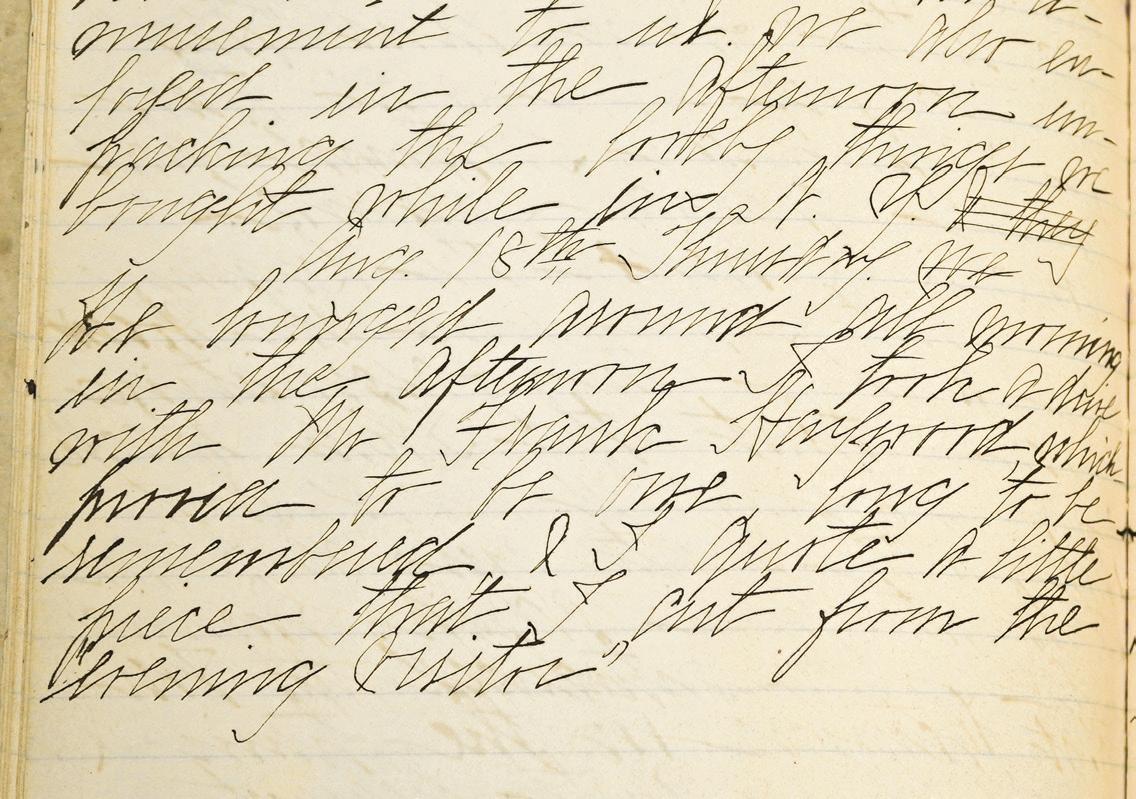 musement to us. We also en-
joyed in the afternoon un-
packing the lovely things we
bought while in N. Y. & they
Aug. 18th Thursday. we
We lounged around all morning
in the afternoon I took a drive
with Mr Frank Haywood, which
proved to be one long to be
remembered, & I quote a little
piece that I cut from the
"evening Visitor"